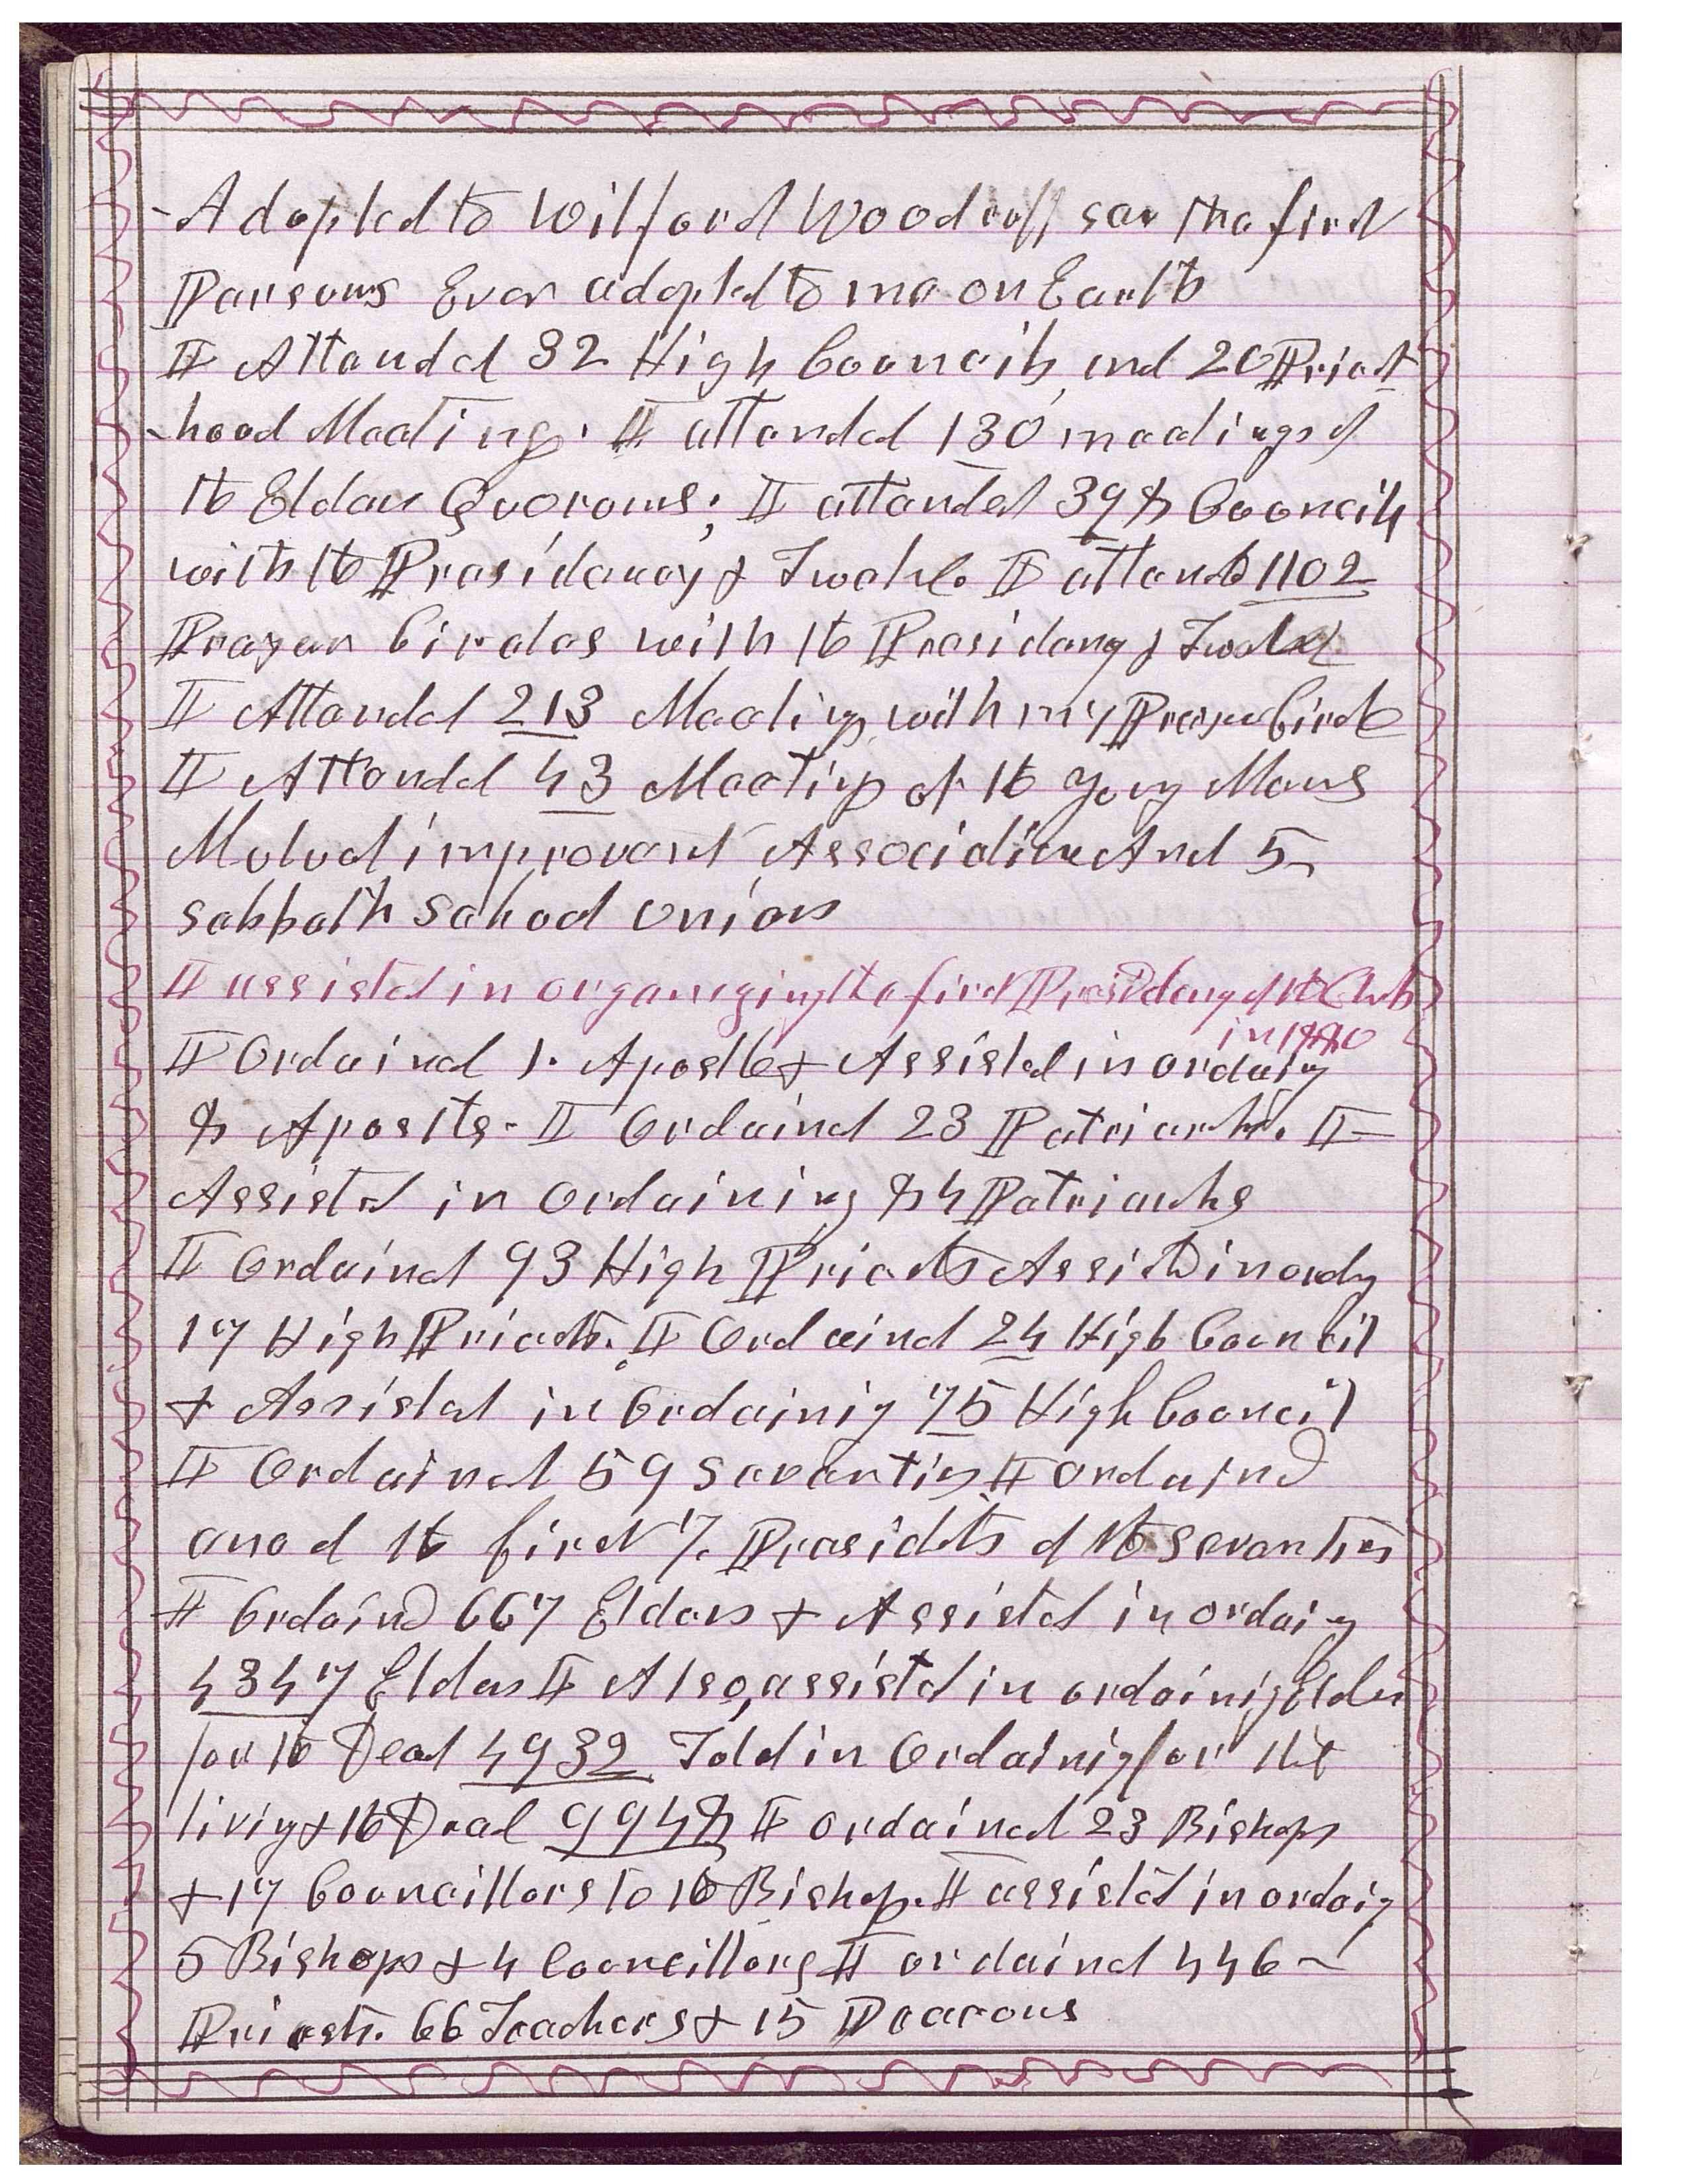 -Adopted to Wilford Woodruff sen the first
Persons Ever adopted to me on Earth
I Attended 32 High Councils and 20 Priest
-hood Meetings. I attended 130 meetings of
the Elders Quorums; I attended 398 Councils
with the Presidency & Twelve. I attended 1102
Prayer Circles with the Presidency & Twelve
I Attended 213 Meetings with my Prayer Circle
I Attended 43 Meetings of the Young Mens
Mutual improvement Association And 5
sabbath School Unions
I assisted in organizing the first Presidency of the Church
in 1880
I Ordained 1. Apostle & Assisted in ordaing
8 Apostles. I Ordained 23 Patriarchs. I
Assisted in Ordaining 84 Patriarchs
I Ordained 93 High Priests Assisted in ordg
17 High Priests. I Ordained 24 High Council
& Assisted in Ordainig 75 High Council
I Ordained 59 Seventies I ordaind
one of the first 7. Presidets of the Seventies
I Ordaind 667 Elders & Assisted in ordaing
4347 Elders I Also, assisted in ordainig Elders
for the Dead 4932 Total in Ordainig for the
livig & the Dead 9948 I ordained 23 Bishops
& 17 Councillors to the Bishop. I assisted in ordaig
5 Bishops & 4 Councillors I ordaind 446
Priests. 66 Teachers & 15 Deacons